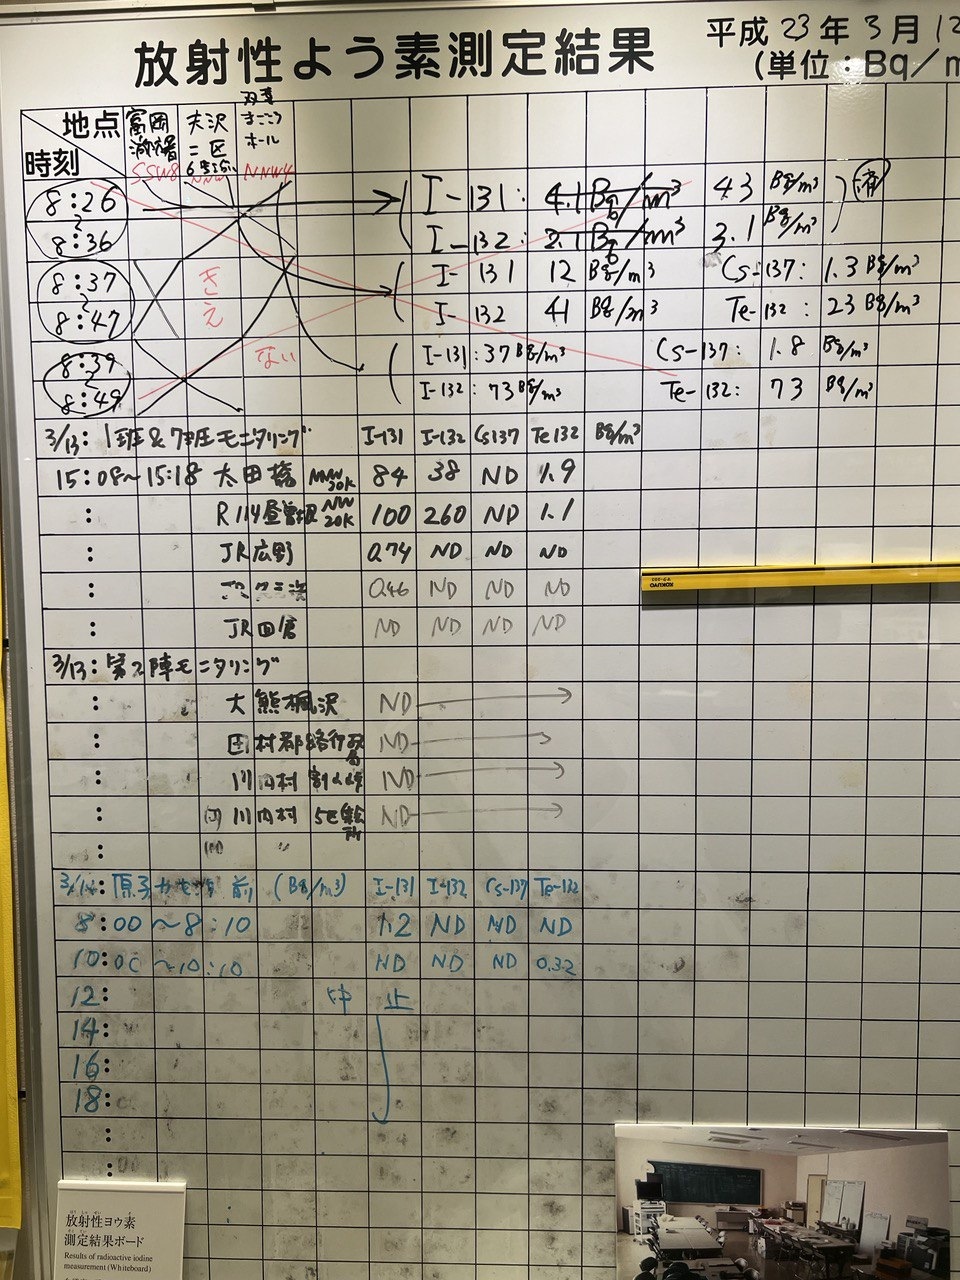 放射性よう素測定結果
平成 23 年 3 月 12
(単位：Bq/m
地点
時刻
富岡
消防署
SSW8
夫沢
二区
NNW
双葉
まごころ
ホール
NNW4
8:26
〜
8:36
I-131: 4.1 Bq/m³ 43 Bq/m³
I-132: 2.1 Bq/m³ 3.1 Bq/m³
8:37
〜
8:47
I-131 12 Bq/m³ Cs-137: 1.3 Bq/m³
I-132 41 Bq/m³ Te-132: 23 Bq/m³
8:39
〜
8:49
I-131: 37 Bq/m³ Cs-137: 1.8 Bq/m³
I-132: 73 Bq/m³ Te-132: 73 Bq/m³
きえ
ない
3/13: 1班& モニタリング I-131 I-132 Cs137 Te132 Bq/m³
15:08〜15:18 大田 NNW 20K 84 38 ND 1.9
: R114昼曽根 NW 20K 100 260 ND 1.1
: JR広野 0.74 ND ND ND
: 0.46 ND ND ND
: JR ND ND ND ND
3/13: 第2陣モニタリング
: 大熊 沢 ND
: 田村郡 ND
: 川内村 ND
: 川内村 ND
:
原子力センター前 (Bq/m³) I-131 I-132 Cs-137 Te-132
8:00〜8:10 1.2 ND ND ND
10:00〜10:10 ND ND ND 0.32
12: 中止
14:
16:
18:
:
:
KOKUYO
放射性ヨウ素
測定結果ボード
Results of radioactive iodine
measurement (Whiteboard)